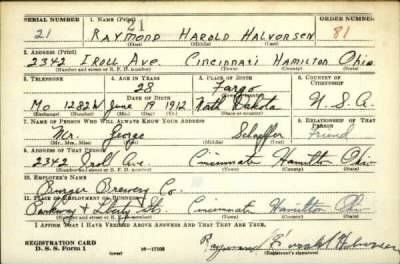 SERIAL NUMBER 1. NAME (Print) ORDER NUMBER
21
21 RAYMOND HAROLD HALVORSEN 81
(First) (Middle) (Last)
2. ADDRESS (Print)
2342 IROLL AVE. CINCINNATI HAMILTON OHIO
(Number and street or R. F. D. number) (Town) (County) (State)
3. TELEPHONE 4. AGE IN YEARS 5. PLACE OF BIRTH 6. COUNTRY OF CITIZENSHIP
28 Fargo
DATE OF BIRTH (Town or county)
Mo 1282W June 19 1912 North Dakota U.S.A.
(Exchange) (Number) (Mo.) (Day) (Yr.) (State or country)
7. NAME OF PERSON WHO WILL ALWAYS KNOW YOUR ADDRESS 8. RELATIONSHIP OF THAT PERSON
Mr. George Schaffer Friend
(Mr., Mrs., Miss) (First) (Middle) (Last)
9. ADDRESS OF THAT PERSON
2342 Iroll Ave. Cincinnati Hamilton Ohio
(Number and street or R. F. D. number) (Town) (County) (State)
10. EMPLOYER'S NAME
Burger Brewery Co.
11. PLACE OF EMPLOYMENT OR BUSINESS
Parkway & Liberty Sts. Cincinnati Hamilton Ohio
(Number and street or R. F. D. number) (Town) (County) (State)
I AFFIRM THAT I HAVE VERIFIED ABOVE ANSWERS AND THAT THEY ARE TRUE.
REGISTRATION CARD
D. S. S. Form 1 16-17105 Raymond Harold Halvorsen
(Registrant's signature)